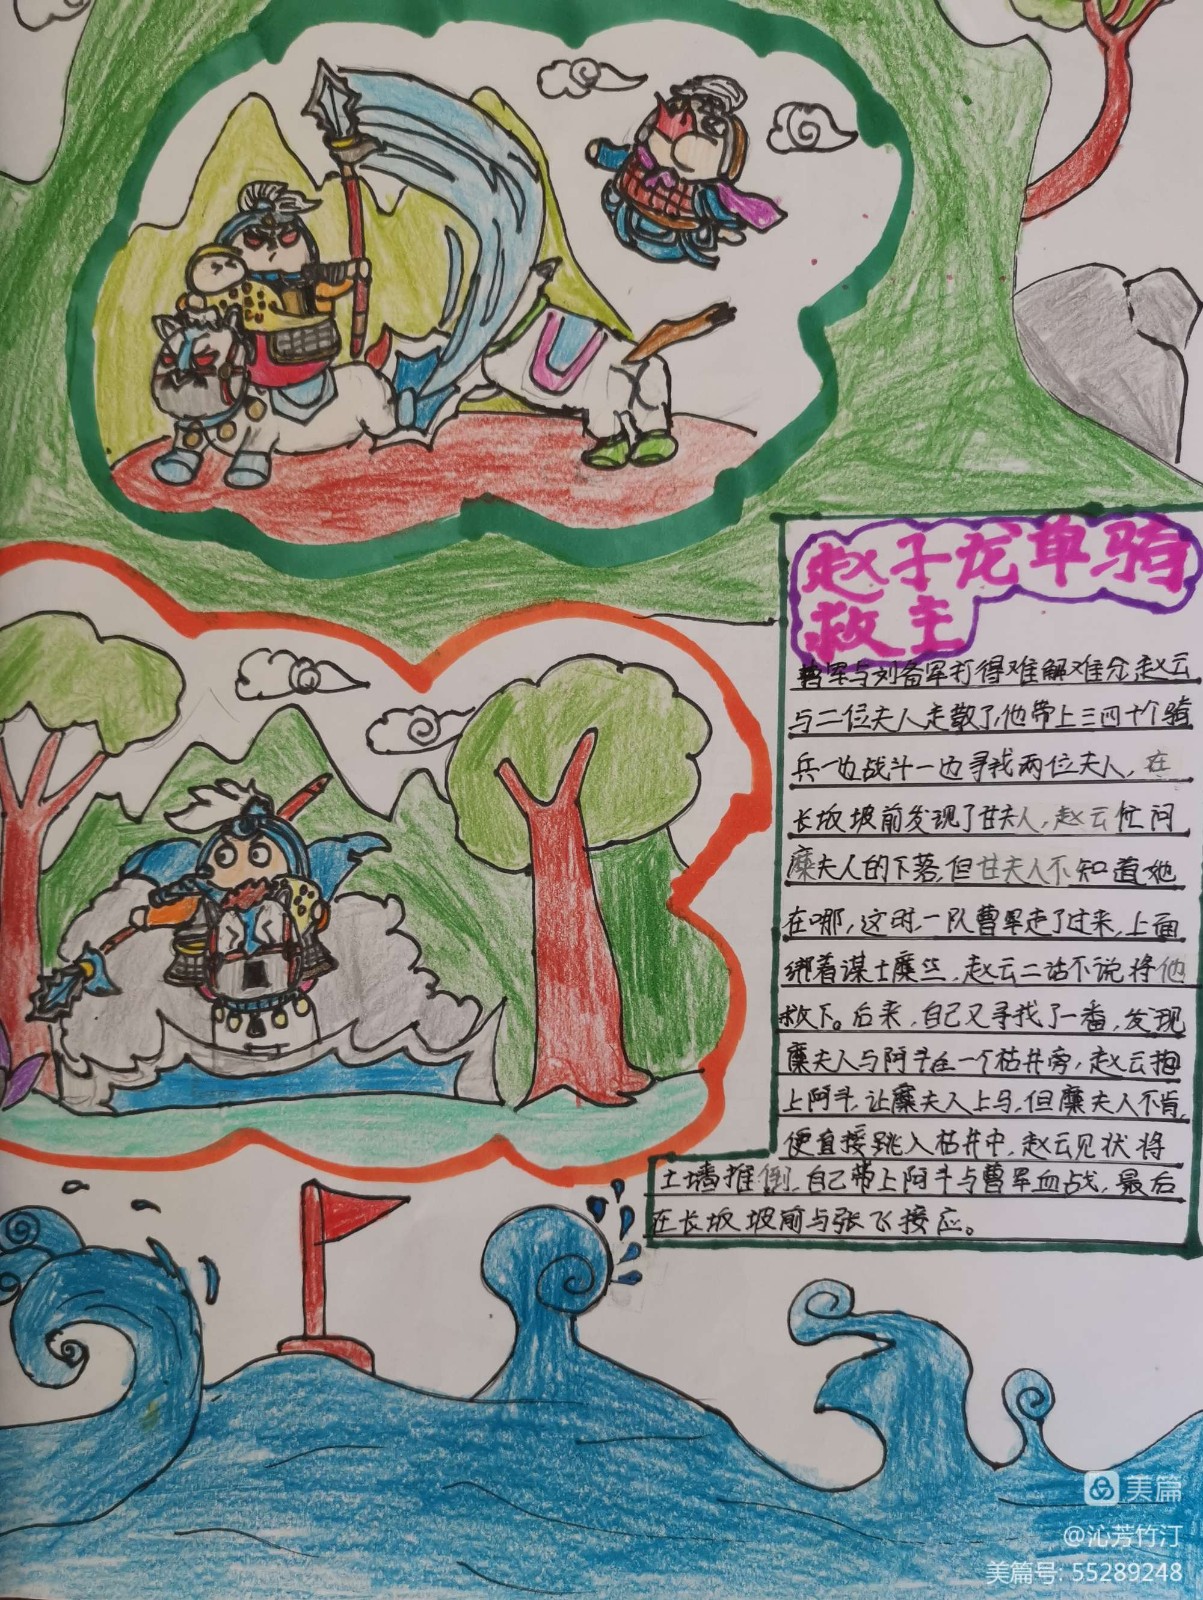 赵子龙单骑
救主
曹军与刘备军打得难解难分,赵云
与二位夫人走散了,他带上三四十个骑
兵一边战斗一边寻找两位夫人,在
长坂坡前发现了甘夫人,赵云忙问
糜夫人的下落,但甘夫人不知道她
在哪,这时,一队曹军走了过来,上面
绑着谋士糜竺,赵云二话不说将他
救下。后来,自己又寻找了一番,发现
糜夫人与阿斗在一个枯井旁,赵云抱
上阿斗,让糜夫人上马,但糜夫人不肯,
便直接跳入枯井中,赵云见状将
土墙推倒,自己带上阿斗与曹军血战,最后
在长坂坡前与张飞接应。
美篇
@沁芳竹汀
美篇号: 55289248